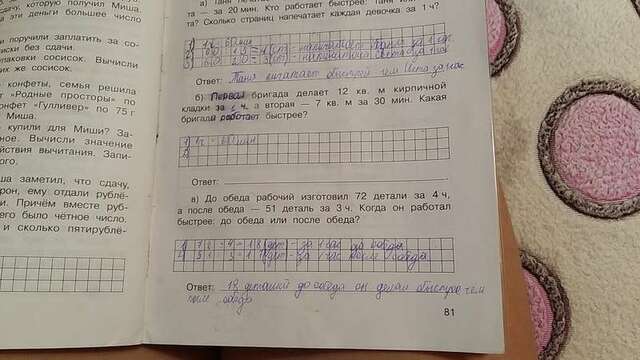 , которую получил Миша.
эти деньги большее число
и поручили заплатить за со-
иски без сдачи.
паковки сосисок. Вычисли
их же сосисок.
конфеты, семья решила
«Родные просторы» по
онфет «Гулливер» по 75 г
Миша.
купили для Миши? За-
ное. Вычисли значение
йствия вычитания. Запи-
ого.
ша заметил, что сдачу,
рон, ему отдали рублё-
и. Причём вместе руб-
его было чётное число.
и сколько пятирублё-
та — за 20 мин. Кто работает быстрее: Таня или
та? Сколько страниц напечатает каждая девочка за 1 ч?
1) 1ч = 60 мин
Ответ: Таня печатает быстрей чем Света за час
б) Первая бригада делает 12 кв. м кирпичной
кладки за 1 ч, а вторая — 7 кв. м за 30 мин. Какая
бригада работает быстрее?
1) 1ч = 60 мин
2)
Ответ:
в) До обеда рабочий изготовил 72 детали за 4 ч,
а после обеда — 51 деталь за 3 ч. Когда он работал
быстрее: до обеда или после обеда?
1) 72 : 4 = 18 дет - за 1 час до обеда
2) 51 : 3 = 17 дет - за 1 час после обеда
Ответ: 18 деталей до обеда он делал быстрее чем
после обеда
81